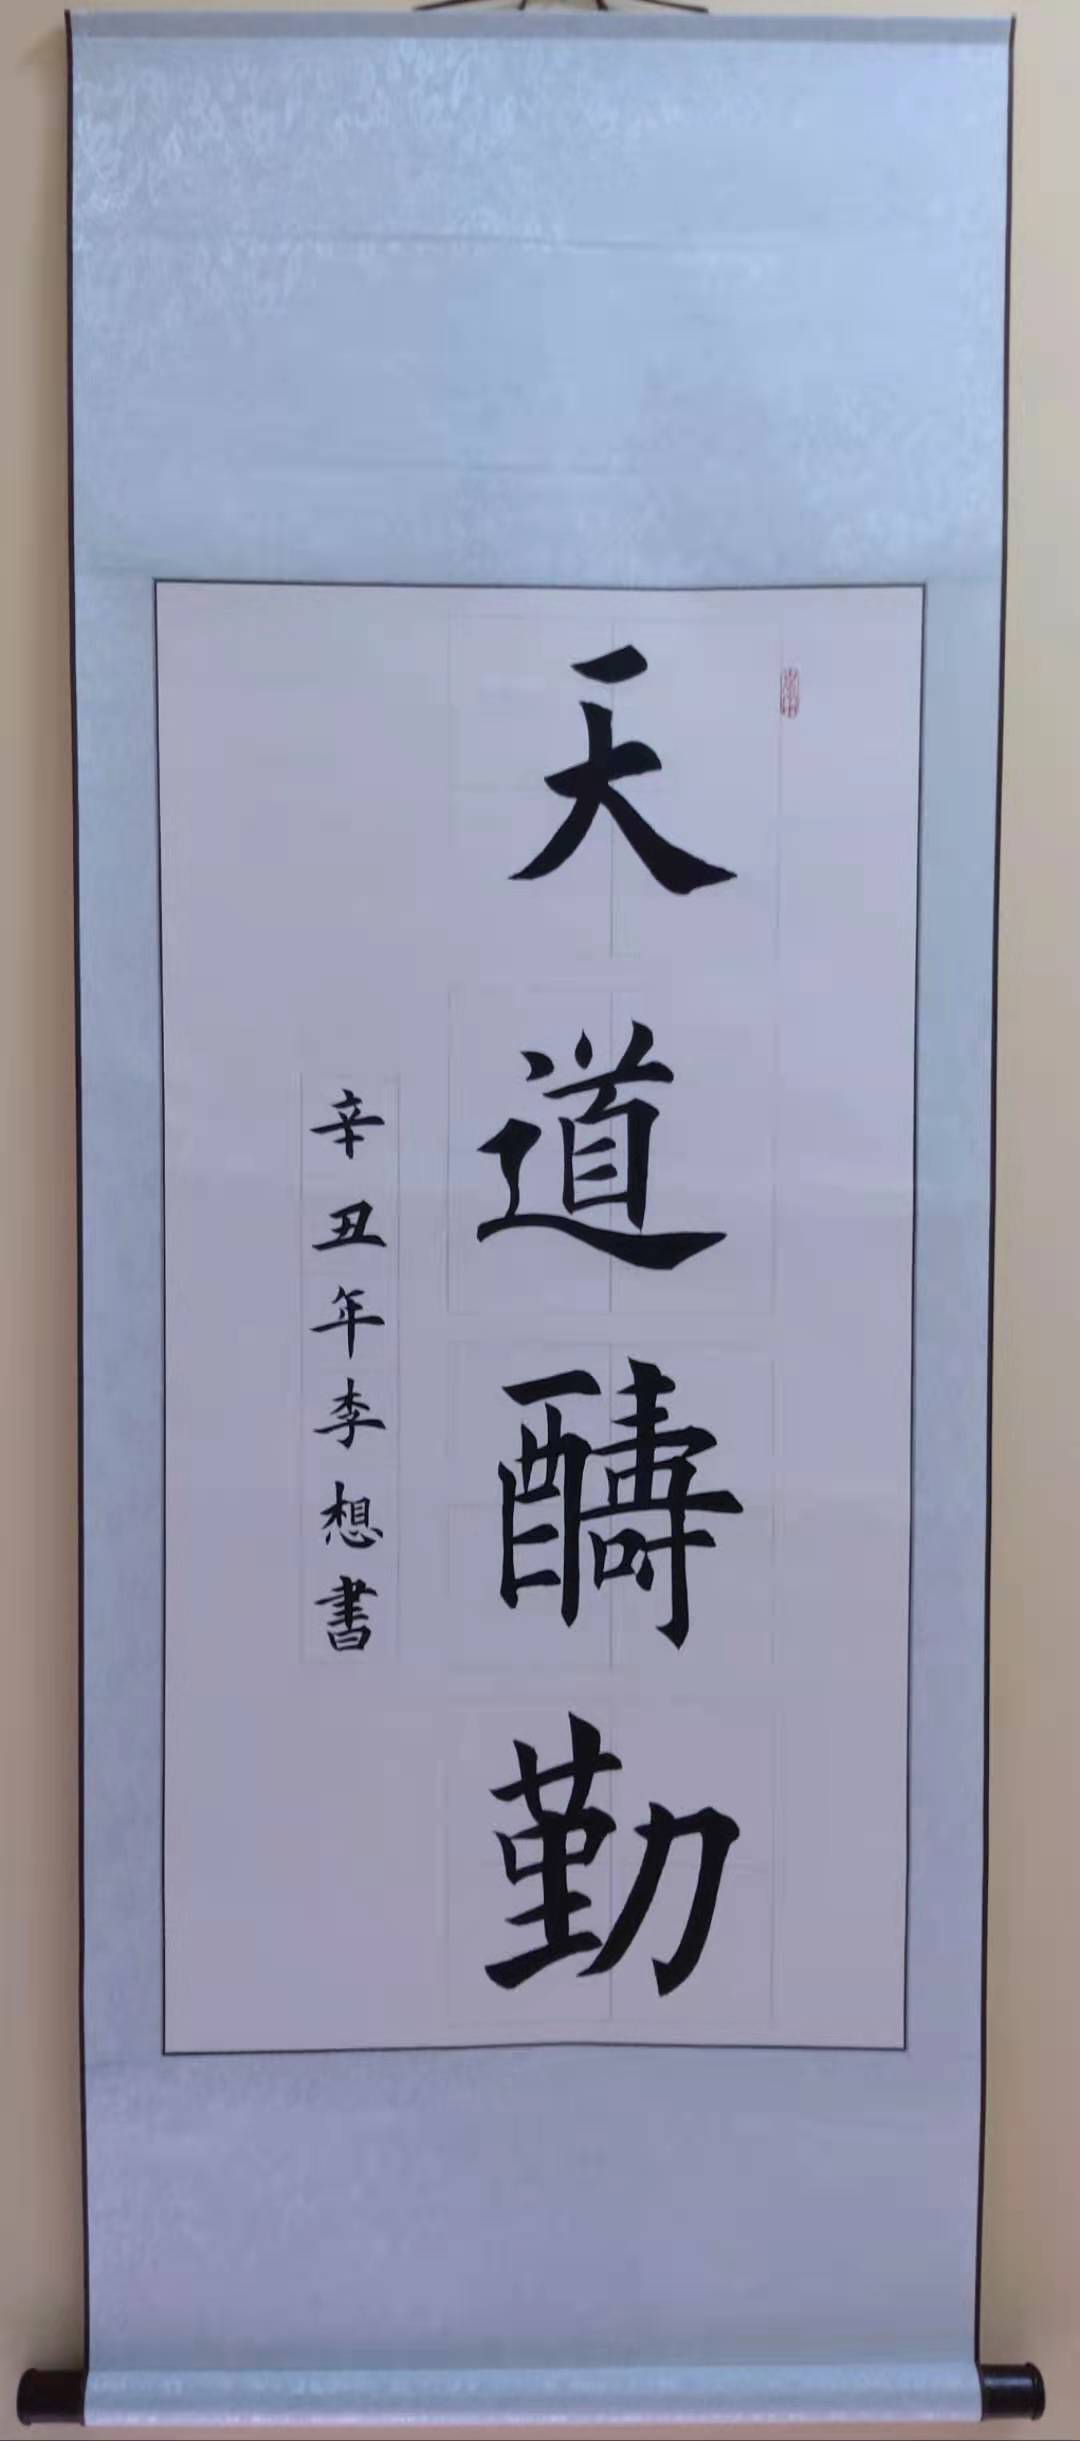 天道酬勤
辛丑年李想書